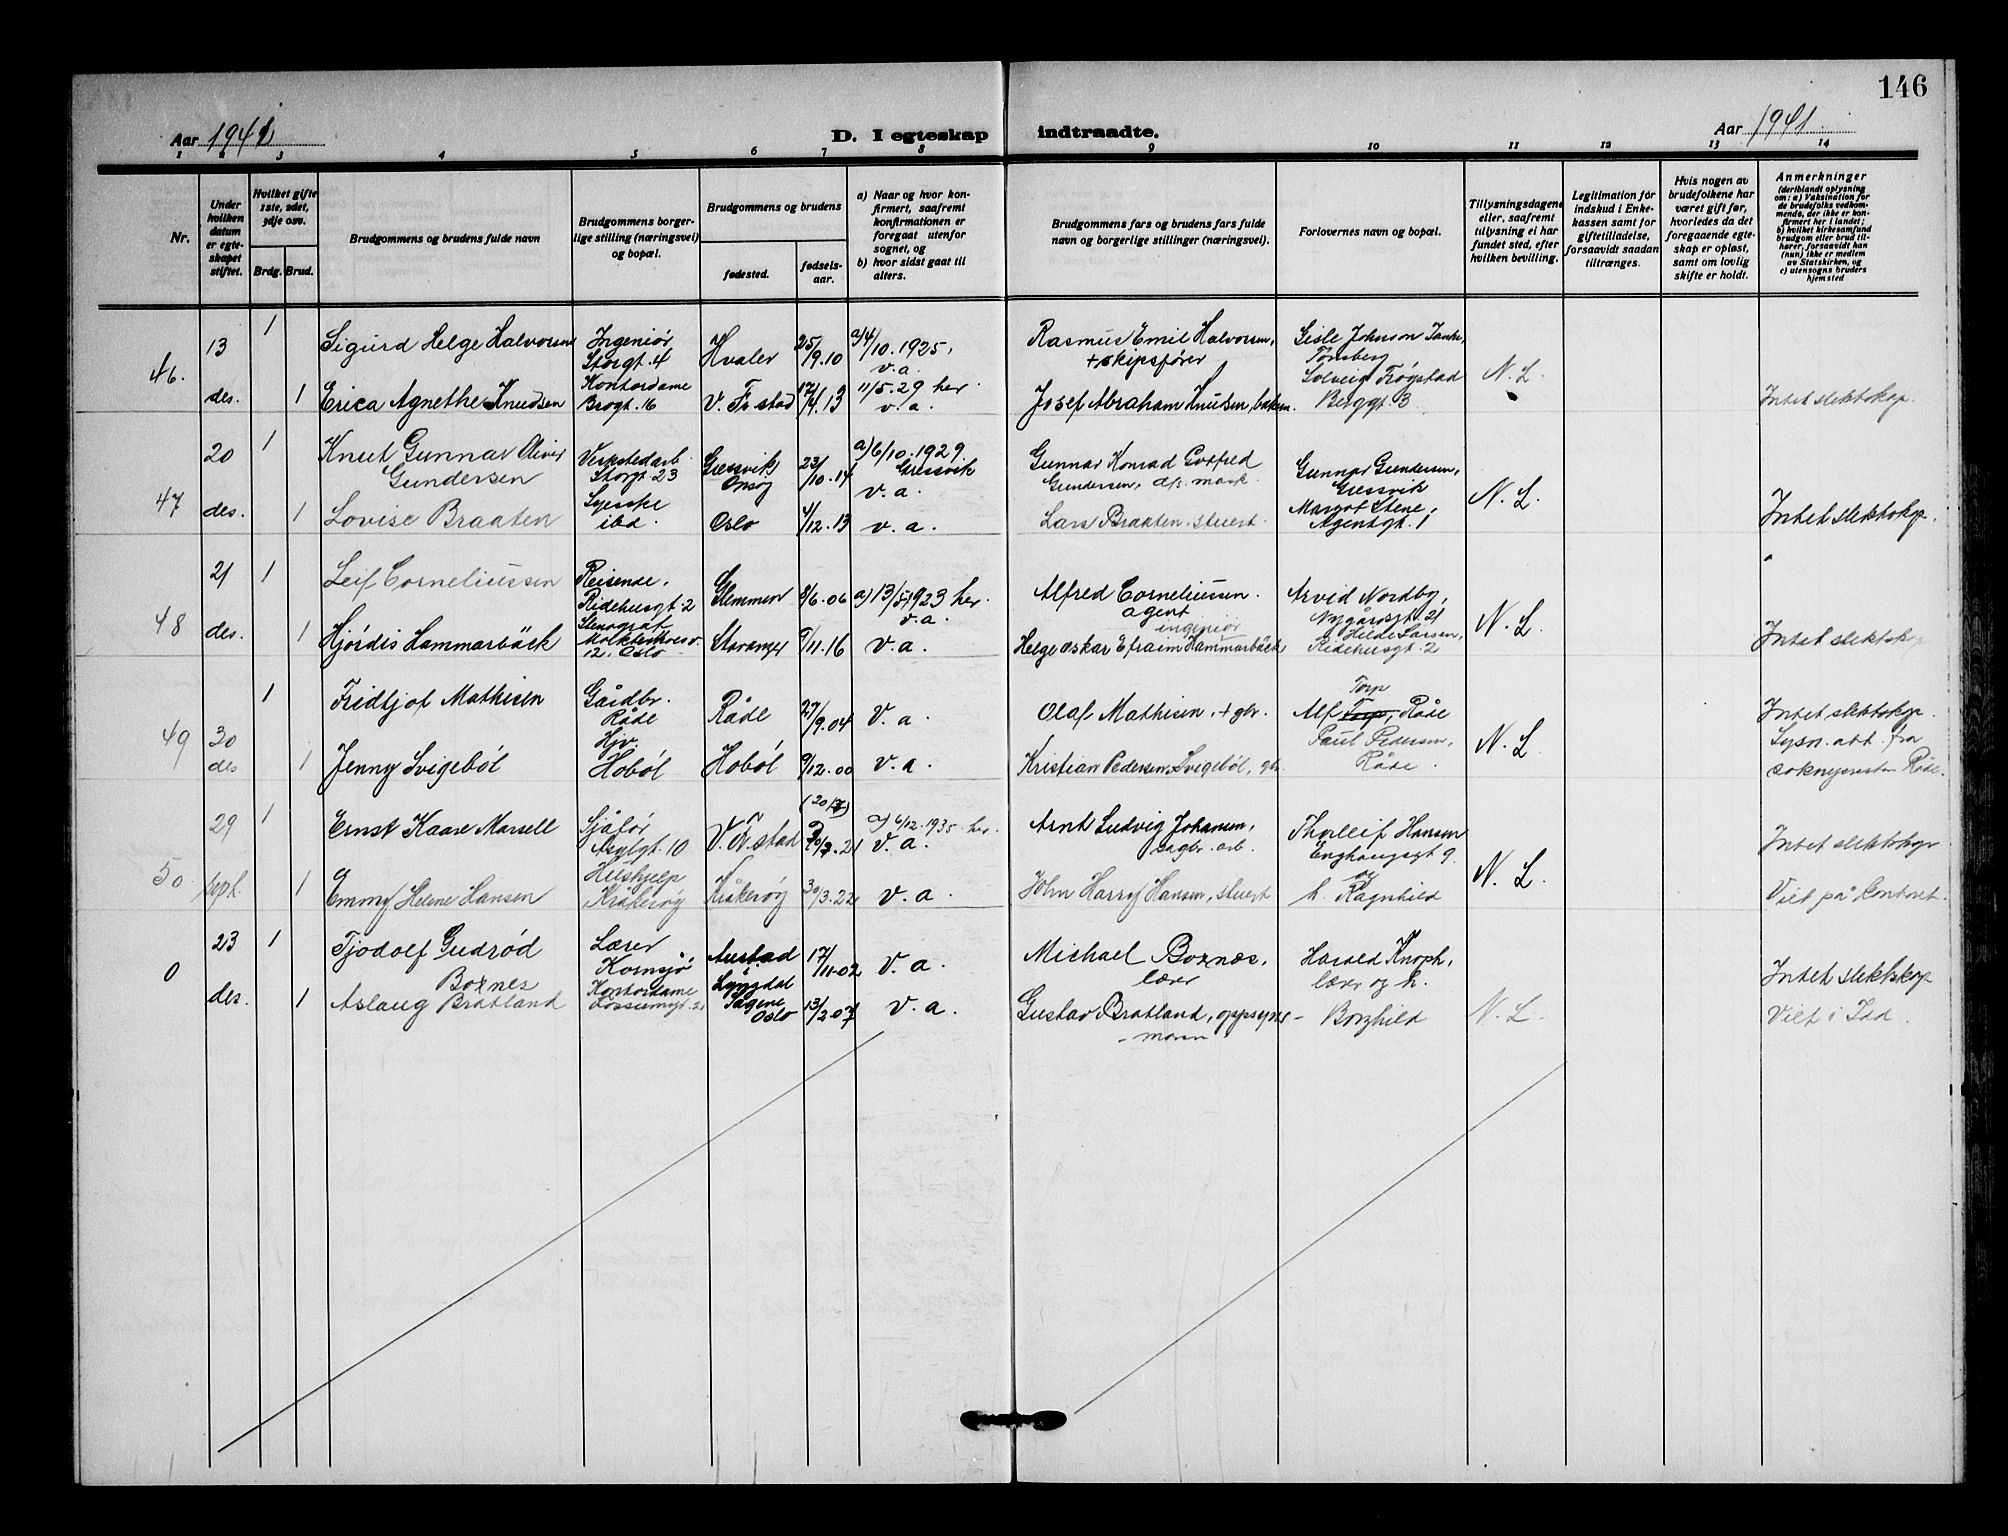 146
Aar 1941
D. I egteskap indtraadte.
Aar 1941.
1 2 3 4 5 6 7 8 9 10 11 12 13 14
Nr.
Under hvilken datum er egte-skapet stiftet.
Hvilket gifte 1ste, 2det, 3dje osv.
Brdg. Brud.
Brudgommens og brudens fulde navn
Brudgommens borger-lige stilling (næringsvei) og bopæl.
Brudgommens og brudens
fødested.
fødsels-aar.
a) Naar og hvor kon-firmert, saafremt konfirmationen er foregaat utenfor sognet, og
b) hvor sidst gaat til alters.
Brudgommens fars og brudens fars fulde navn og borgerlige stillinger (næringsvei).
Forlovernes navn og bopæl.
Tillysningsdagene eller, saafremt tillysning ei har fundet sted, efter hvilken bevilling.
Legitimation for indskud i Enke-kassen samt for giftetilladelse, forsaavidt saadan tiltrænges.
Hvis nogen av brudefolkene har været gift før, hvorledes da det foregaaende egte-skap er opløst, samt om lovlig skifte er holdt.
Anmerkninger
(deriblandt oplysning om: a) Vaksination for de brudefolks vedkom-mende, der ikke er kon-firmert her i landet; b) hvilket kirkesamfund brudgom eller brud til-hører, forsaavidt han (hun) ikke er medlem av Statskirken, og c) utensogns bruders hjemsted
46.
13 des.
1
Sigurd Helge Halvorsen
Ingeniør
Storgt. 4
Hvaler
25/9.10
a) 4/10.1925,
v. a.
Rasmus Emil Halvorsen,
+ skipsfører
Gisle Johnson
Tønsberg
Solveig Frøgstad
Berggt. 3
N. L.
1
Erica Agnethe Knudsen
Kontordame
Brogt. 16
V. Fr.stad
17/4.13
11/5.29 her.
v. a.
Josef Abraham Knudsen,
Intet slektskap.
47
20 des.
1
Knut Gunnar Oliver
Gundersen
Verkstedarb.
Storgt 23
Gressvik
Onsøy
23/10.14
a) 6/10.1929.
Gressvik
v. a.
Gunnar Konrad Gotfred
Gundersen,
Gunnar Gundersen,
Gressvik
Margot Stene,
Agentgt. 1
N. L.
1
Lovise Braaten
Syerske
ibd.
Oslo
/12.13
v. a.
Lars Braaten, stuert.
Intet slektskap.
48
21 des.
1
Leif Corneliussen
Reisende,
Ridehusgt. 2
Glemmen
8/6.06
a) 13/5 1923 her.
v. a.
Alfred Corneliussen.
agent
Arvid Nordby,
Nygårdsgt 21
Hilde Larsen,
Ridehusgt. 2
N. L.
1
Hjördis Hammarbäck
Stenograf
12. Oslo
Stavanger
9/11.16
v. a.
ingeniør
Helge Oskar Efraim Hammarbäck
Intet slektskap
49
30 des
1
Fridtjof Mathisen
Gårdbr.
Råde
Råde
27/9.04
v. a.
Olaf Mathisen, + gbr.
Torp
Alf Torp, Råde
Paul Pedersen,
Råde.
N. L
1
Jenny Svigebøl
Hjv.
Hobøl
Hobøl
9/12.00
v. a.
Kristian Pedersen Svigebøl,
Intet slektskap.
Lysn. att. fra
soknepresten Råde.
50.
29 sept.
1
Ernst Kaare Marsell
Sjåfør
Asylgt. 10
V. Fr.stad
a) 6/12.1935. her.
v. a.
Arnt Ludvig Johansen,
sagbr. arb.
Thorleif Hansen
Enghaugsgt 9.
og
h. Ragnhild
N. L.
1
Emmy Helene Hansen
Hushjelp
Kråkerøy
Kråkerøy
30/3.22
v. a.
John Harry Hansen, stuert
Intet slektskap
Viet på kontoret.
0
23 des.
1
Tjodolf Gudrød
Boxnes
Lærer
Kornsjø
Austad
Lyngdal
17/11.02
v. a.
Michael Boxnes,
lærer
Harald Knoph,
lærer og h.
Borghild
N. L.
1
Aslaug Bratland
Kontordame
Sagene
Oslo
13/2.07
v. a.
Gustav Bratland, oppsyns-
mann
Intet slektskap
Viet i Idd.